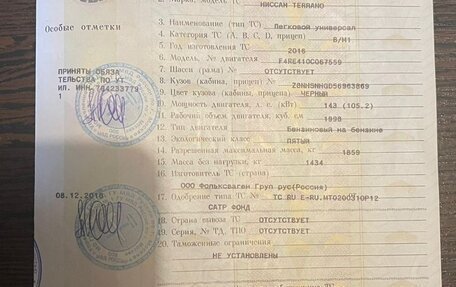 2. Марка, модель ТС НИССАН TERRANO
Особые отметки
3. Наименование (тип ТС) Легковой универсал
4. Категория ТС (А, В, С, D, прицеп) B/M1
5. Год изготовления ТС 2016
6. Модель, № двигателя F4RE410C067559
7. Шасси (рама) № ОТСУТСТВУЕТ
ПРИНЯТЫ ОБЯЗА
ТЕЛЬСТВА ПО УТ
ИЛ. ИНН.784233779
1
8. Кузов (кабина, прицеп) № Z8NHSNHGD56963869
9. Цвет кузова (кабины, прицепа) ЧЕРНЫЙ
10. Мощность двигателя, л. с. (кВт) 143 (105.2)
11. Рабочий объем двигателя, куб. см 1998
12. Тип двигателя Бензиновый на бензине
13. Экологический класс ПЯТЫЙ
14. Разрешенная максимальная масса, кг 1859
15. Масса без нагрузки, кг 1434
16. Изготовитель ТС (страна)
ООО Фольксваген Груп рус(Россия)
08.12.2016
17. Одобрение типа ТС № ТС RU E-RU.МТ02.00310Р12
САТР ФОНД
18. Страна вывоза ТС ОТСУТСТВУЕТ
19. Серия, № ТД, ТПО ОТСУТСТВУЕТ
20. Таможенные ограничения
НЕ УСТАНОВЛЕНЫ